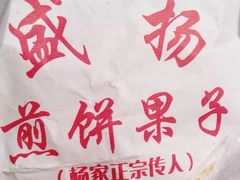 盛扬
煎饼果子
(杨家正宗传人)